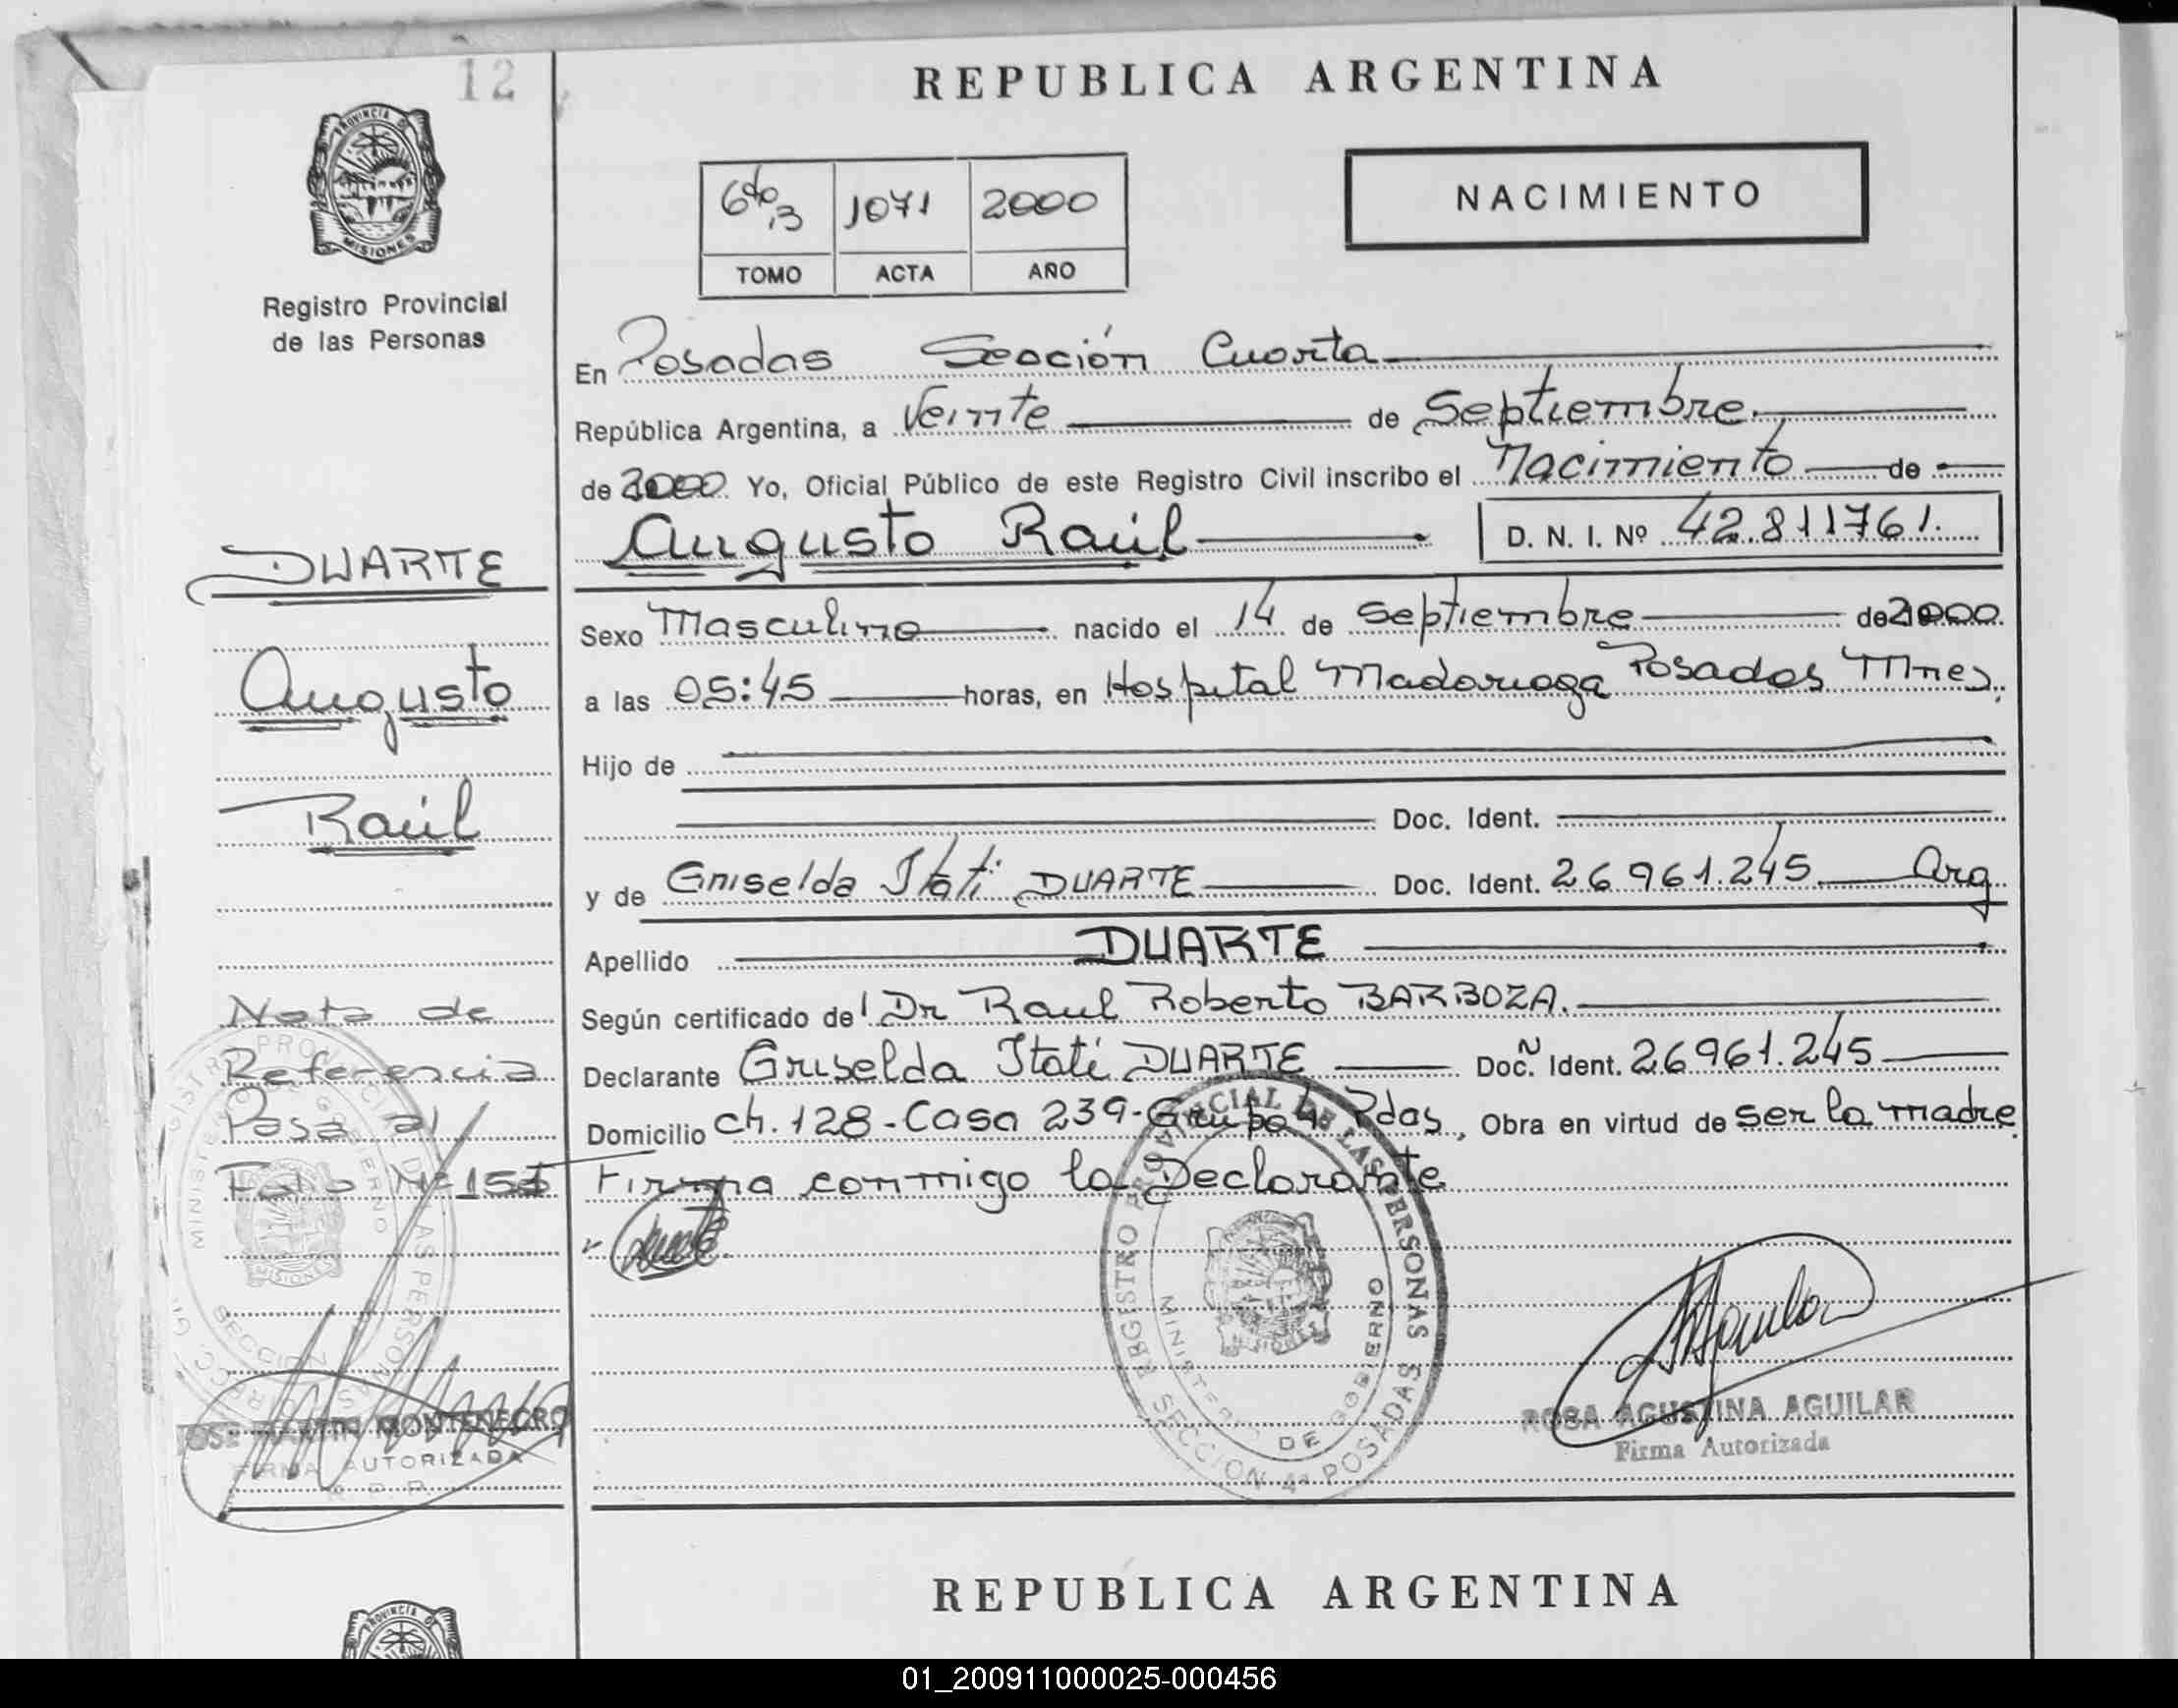 12
REPUBLICA ARGENTINA
PROVINCIA DE
MISIONES
Registro Provincial
de las Personas
6to 13 1071 2000
TOMO ACTA AÑO
NACIMIENTO
En Posadas Sección Cuarta
República Argentina, a Veinte de Septiembre
de 2000 Yo, Oficial Público de este Registro Civil inscribo el Nacimiento de
Augusto Raúl D. N. I. Nº 42.811761.
Sexo Masculino nacido el 14 de septiembre de 2000
a las 05:45 horas, en Hospital Madariaga Posadas Mnes.
Hijo de
Doc. Ident.
y de Griselda Itatí DUARTE Doc. Ident. 26961.245 Arg
Apellido DUARTE
Según certificado del Dr Raul Roberto BARBOZA.
Declarante Griselda Itatí DUARTE Doc. Ident. 26961.245
Domicilio Ch. 128-Casa 239-Grupo 4 Pdas, Obra en virtud de ser la madre
Firma conmigo la Declarante
DUARTE
Augusto
Raúl
Nota de
Referencia
Pasa al
Folio Nº
JOSE MARTIN MONTENEGRO
FIRMA AUTORIZADA
R. P. P.
REGISTRO PROVINCIAL DE LAS PERSONAS
MINISTERIO DE GOBIERNO
SECCION 4ª POSADAS
ROSA AGUSTINA AGUILAR
Firma Autorizada
REPUBLICA ARGENTINA
PROVINCIA DE
01_200911000025-000456